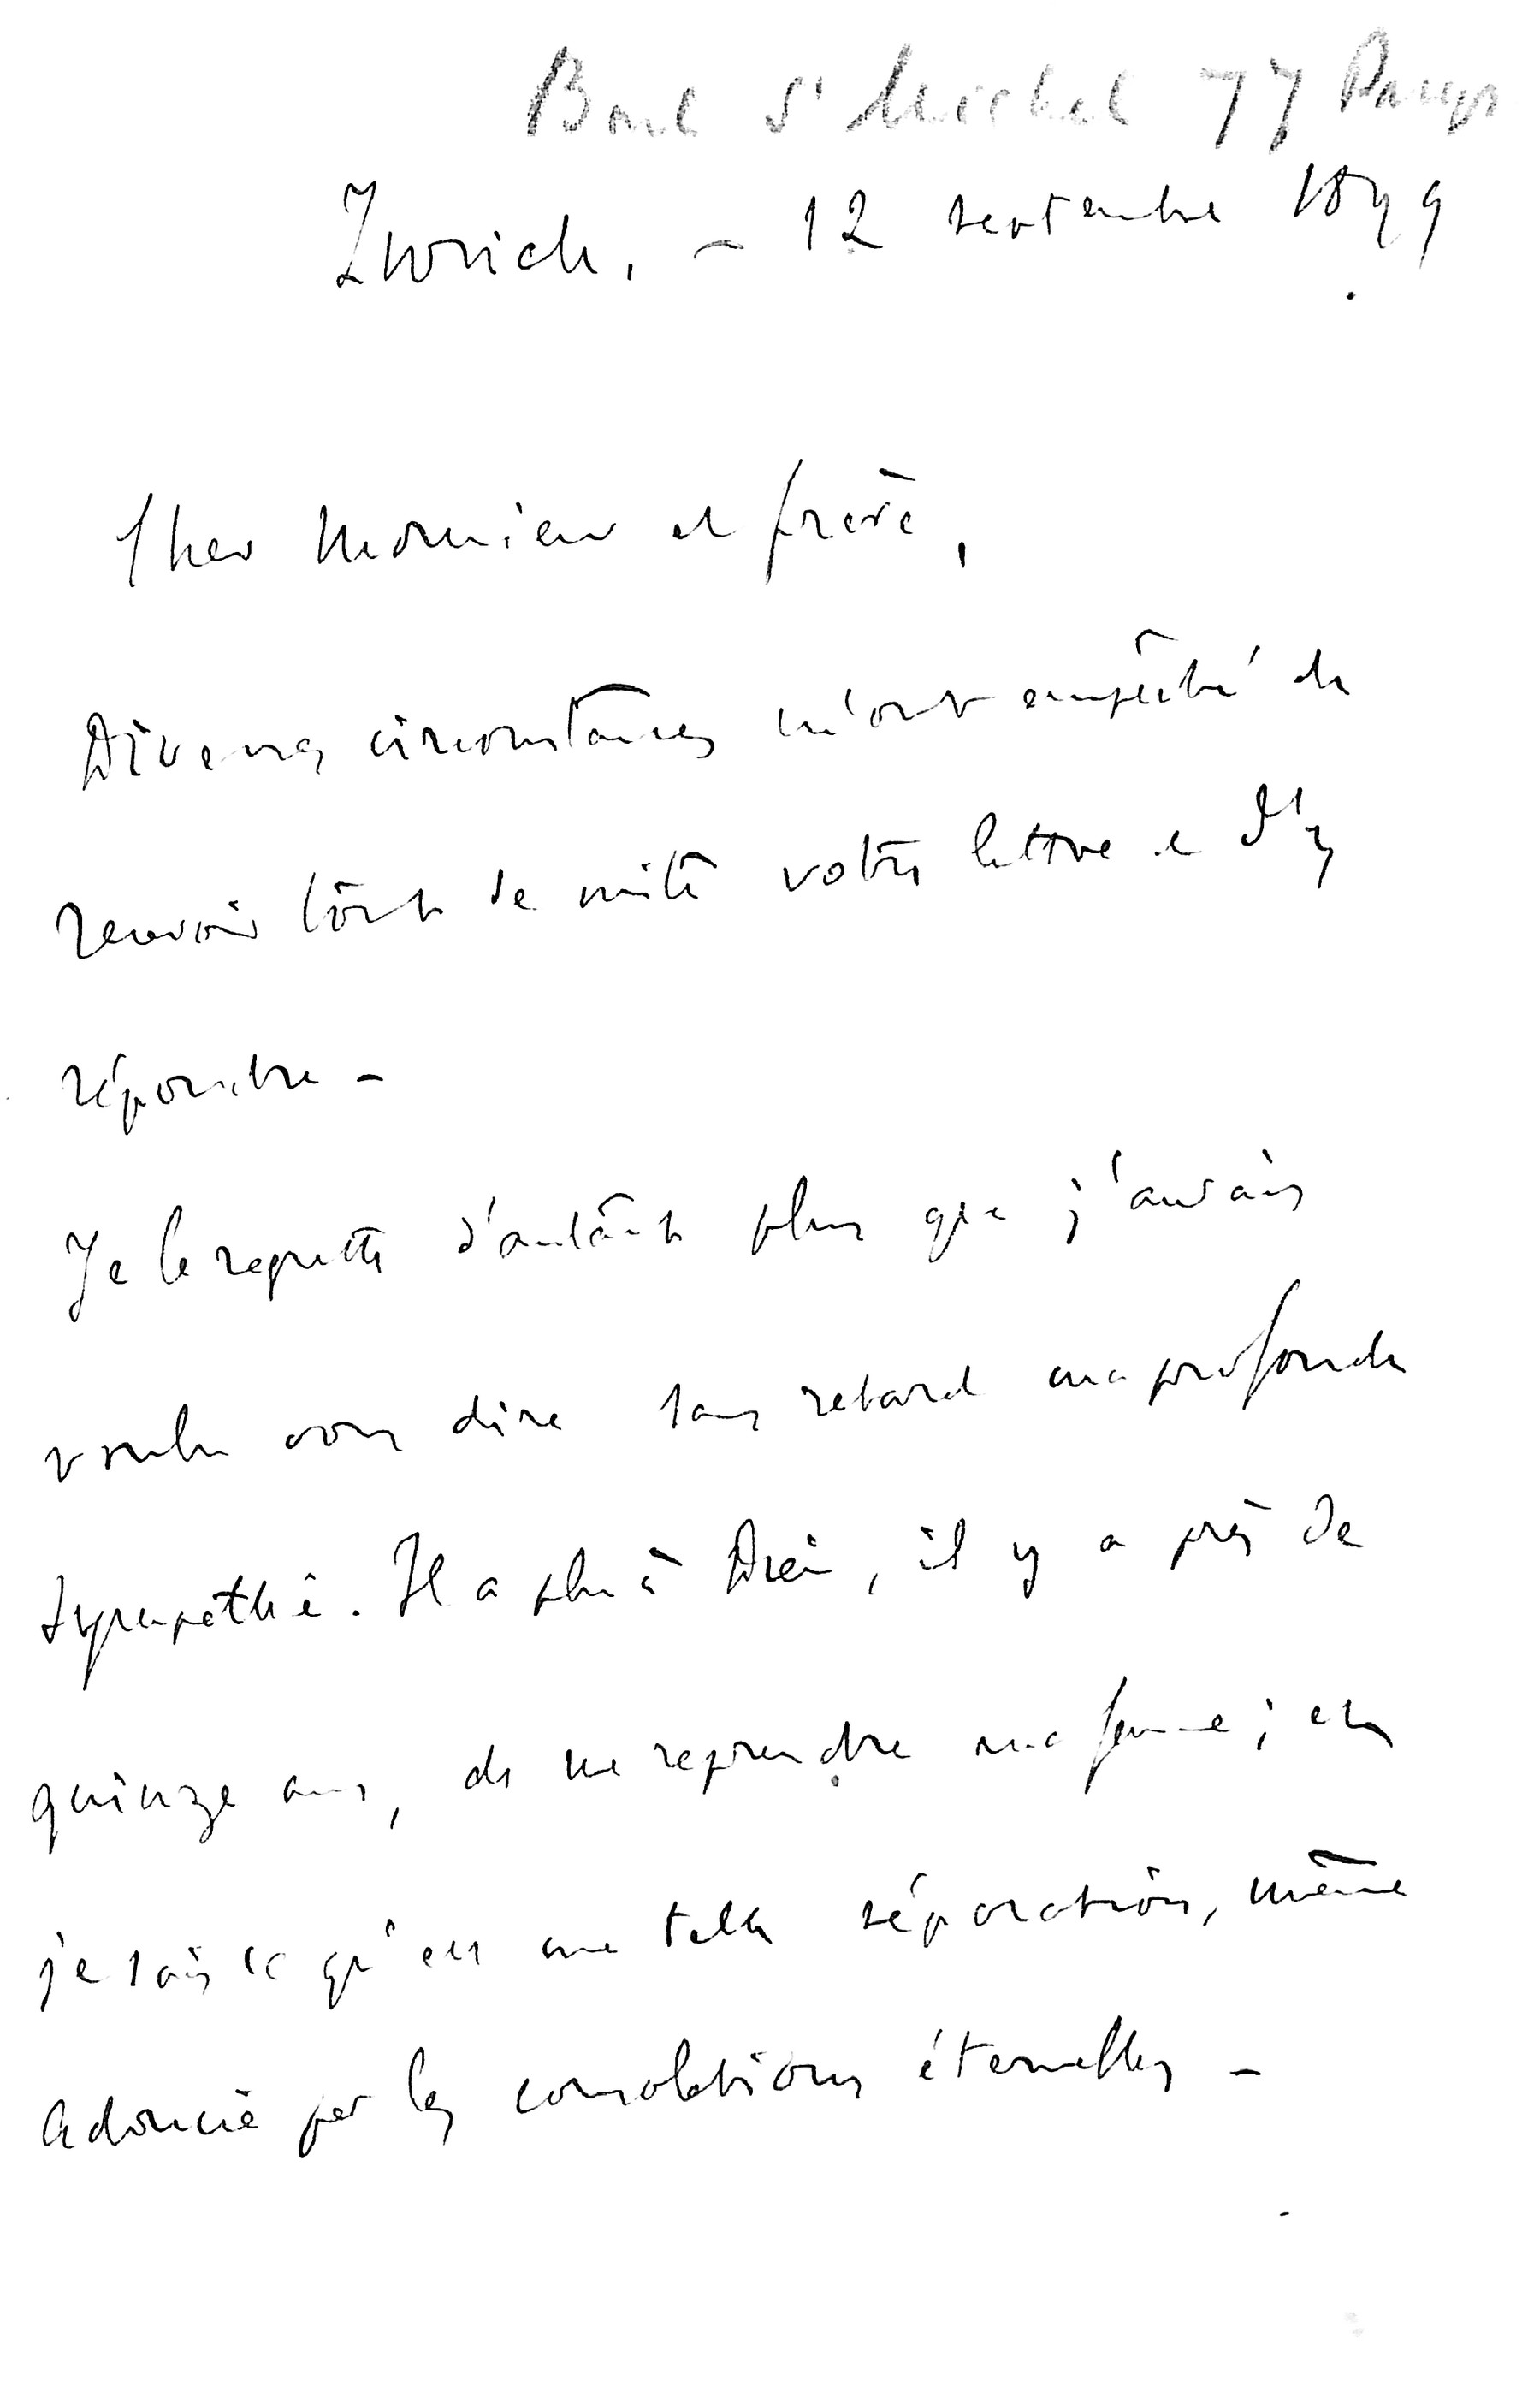 Boul St Michel 77 Paris
Zurich. – 12 septembre 1899
Cher Monsieur et frère,
Diverses circonstances m'ont empêché de
recevoir tout de suite votre lettre et d'y
répondre –
Je le regrette d'autant plus que j'aurais
voulu vous dire sans retard ma profonde
sympathie. Il a plu à Dieu, il y a près de
quinze ans, de me reprendre ma femme ; et
je sais ce qu'est une telle séparation, même
adoucie par les consolations éternelles –